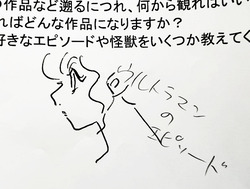 の作品など遡るにつれ、何から観ればいい
ればどんな作品になりますか？
好きなエピソードや怪獣をいくつか教えてく
ウルトラマン
の
エピソード